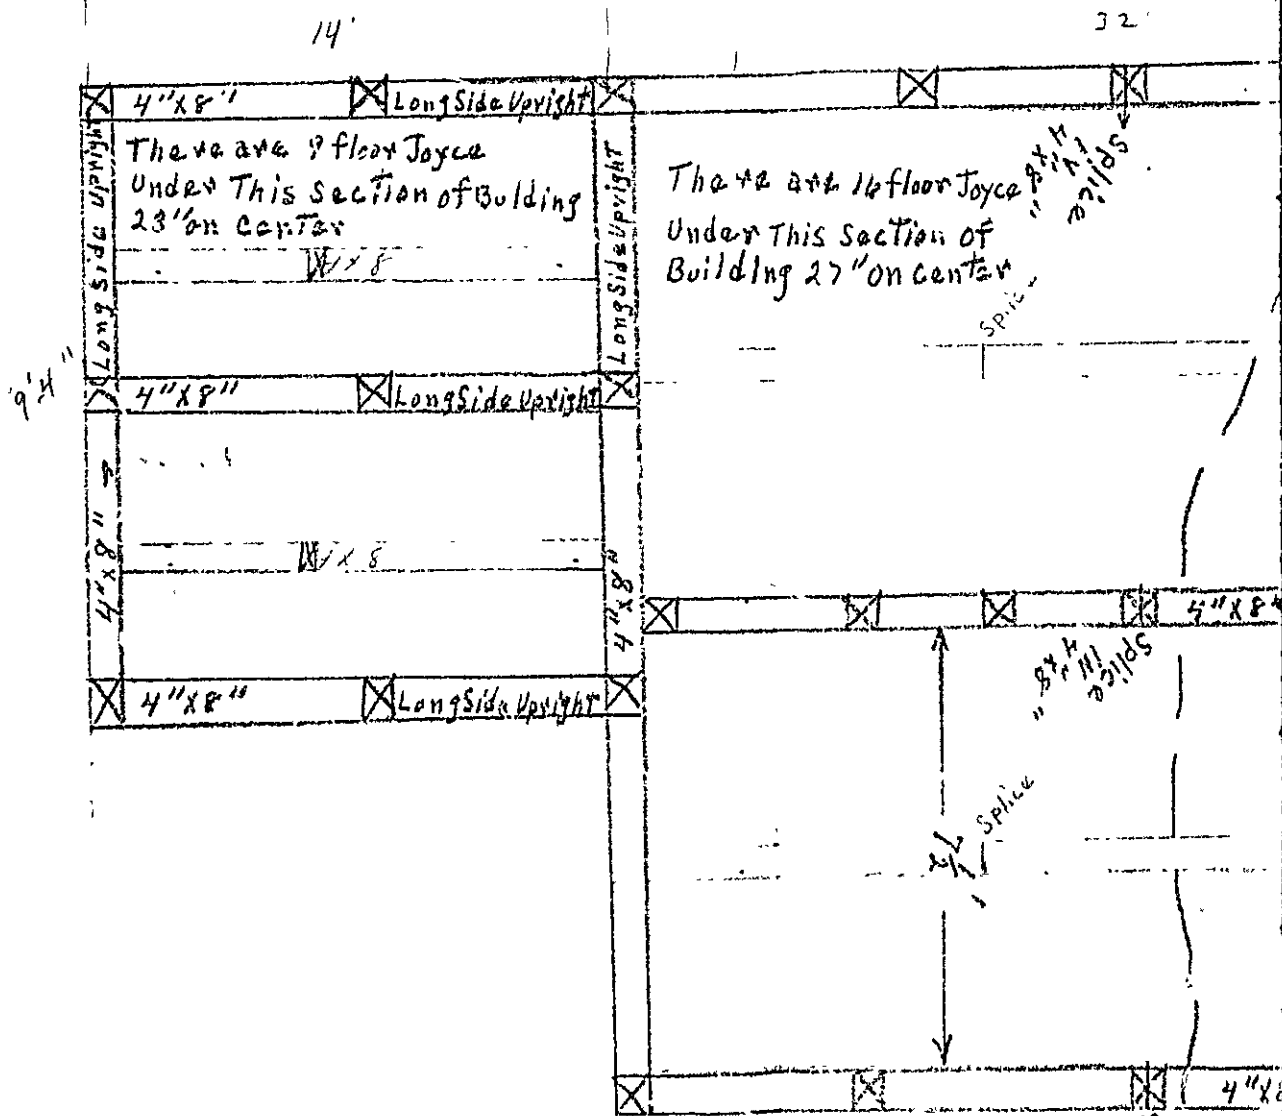 14'
32'
4"X8"
LongSideUpright
There are 9 floor Joyce
Under This Section of Bulding
23" on Center
LongSide Upright
LongSideUpright
There are 16 floor Joyce
Under This Section Of
Building 27" On Center
Splice
4"x8"
x 8
Splice
9'4"
4"X8"
LongSideUpright
4"x8"
x 8
4"x8"
4"X8"
Splice
IN
4"x8"
4"X8"
LongSide Upright
Splice
4"X8